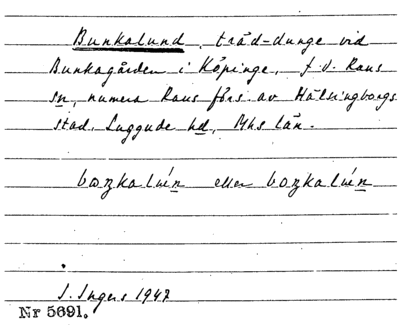 Bunkalund, träd-dunge vid
Bunkagården i Köpinge, f.d. Raus
sn, numera Raus förs. av Hälsingborgs
stad. Luggude hd, Mhs län.
boŋkalẃn eller boŋkalẃn
I. Ingers 1947
Nr 5691.